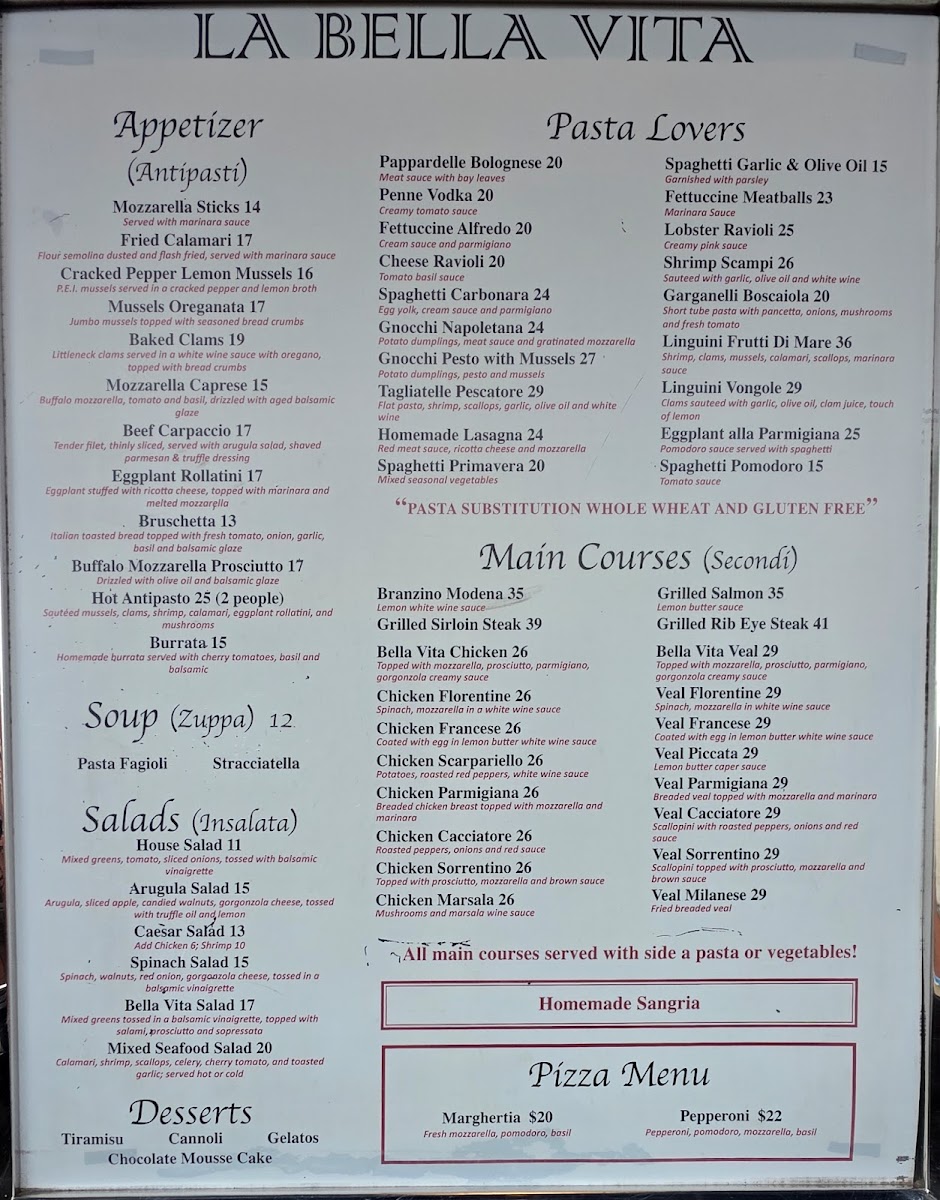 LA BELLA VITA
Appetizer
(Antipasti)
Mozzarella Sticks 14
Served with marinara sauce
Fried Calamari 17
Flour semolina dusted and flash fried, served with marinara sauce
Cracked Pepper Lemon Mussels 16
P.E.I. mussels served in a cracked pepper and lemon broth
Mussels Oreganata 17
Jumbo mussels topped with seasoned bread crumbs
Baked Clams 19
Littleneck clams served in a white wine sauce with oregano,
topped with bread crumbs
Mozzarella Caprese 15
Buffalo mozzarella, tomato and basil, drizzled with aged balsamic
glaze
Beef Carpaccio 17
Tender filet, thinly sliced, served with arugula salad, shaved
parmesan & truffle dressing
Eggplant Rollatini 17
Eggplant stuffed with ricotta cheese, topped with marinara and
melted mozzarella
Bruschetta 13
Italian toasted bread topped with fresh tomato, onion, garlic,
basil and balsamic glaze
Buffalo Mozzarella Prosciutto 17
Drizzled with olive oil and balsamic glaze
Hot Antipasto 25 (2 people)
Sautéed mussels, clams, shrimp, calamari, eggplant rollatini, and
mushrooms
Burrata 15
Homemade burrata served with cherry tomatoes, basil and
balsamic
Soup (Zuppa) 12
Pasta Fagioli Stracciatella
Salads (Insalata)
House Salad 11
Mixed greens, tomato, sliced onions, tossed with balsamic
vinaigrette
Arugula Salad 15
Arugula, sliced apple, candied walnuts, gorgonzola cheese, tossed
with truffle oil and lemon
Caesar Salad 13
Add Chicken 6; Shrimp 10
Spinach Salad 15
Spinach, walnuts, red onion, gorgonzola cheese, tossed in a
balsamic vinaigrette
Bella Vita Salad 17
Mixed greens tossed in a balsamic vinaigrette, topped with
salami, prosciutto and sopressata
Mixed Seafood Salad 20
Calamari, shrimp, scallops, celery, cherry tomato, and toasted
garlic; served hot or cold
Desserts
Tiramisu Cannoli Gelatos
Chocolate Mousse Cake
Pasta Lovers
Pappardelle Bolognese 20
Meat sauce with bay leaves
Penne Vodka 20
Creamy tomato sauce
Fettuccine Alfredo 20
Cream sauce and parmigiano
Cheese Ravioli 20
Tomato basil sauce
Spaghetti Carbonara 24
Egg yolk, cream sauce and parmigiano
Gnocchi Napoletana 24
Potato dumplings, meat sauce and gratinated mozzarella
Gnocchi Pesto with Mussels 27
Potato dumplings, pesto and mussels
Tagliatelle Pescatore 29
Flat pasta, shrimp, scallops, garlic, olive oil and white
wine
Homemade Lasagna 24
Red meat sauce, ricotta cheese and mozzarella
Spaghetti Primavera 20
Mixed seasonal vegetables
Spaghetti Garlic & Olive Oil 15
Garnished with parsley
Fettuccine Meatballs 23
Marinara Sauce
Lobster Ravioli 25
Creamy pink sauce
Shrimp Scampi 26
Sauteed with garlic, olive oil and white wine
Garganelli Boscaiola 20
Short tube pasta with pancetta, onions, mushrooms
and fresh tomato
Linguini Frutti Di Mare 36
Shrimp, clams, mussels, calamari, scallops, marinara
sauce
Linguini Vongole 29
Clams sauteed with garlic, olive oil, clam juice, touch
of lemon
Eggplant alla Parmigiana 25
Pomodoro sauce served with spaghetti
Spaghetti Pomodoro 15
Tomato sauce
“PASTA SUBSTITUTION WHOLE WHEAT AND GLUTEN FREE”
Main Courses (Secondi)
Branzino Modena 35
Lemon white wine sauce
Grilled Sirloin Steak 39
Bella Vita Chicken 26
Topped with mozzarella, prosciutto, parmigiano,
gorgonzola creamy sauce
Chicken Florentine 26
Spinach, mozzarella in a white wine sauce
Chicken Francese 26
Coated with egg in lemon butter white wine sauce
Chicken Scarpariello 26
Potatoes, roasted red peppers, white wine sauce
Chicken Parmigiana 26
Breaded chicken breast topped with mozzarella and
marinara
Chicken Cacciatore 26
Roasted peppers, onions and red sauce
Chicken Sorrentino 26
Topped with prosciutto, mozzarella and brown sauce
Chicken Marsala 26
Mushrooms and marsala wine sauce
Grilled Salmon 35
Lemon butter sauce
Grilled Rib Eye Steak 41
Bella Vita Veal 29
Topped with mozzarella, prosciutto, parmigiano,
gorgonzola creamy sauce
Veal Florentine 29
Spinach, mozzarella in white wine sauce
Veal Francese 29
Coated with egg in lemon butter white wine sauce
Veal Piccata 29
Lemon butter caper sauce
Veal Parmigiana 29
Breaded veal topped with mozzarella and marinara
Veal Cacciatore 29
Scallopini with roasted peppers, onions and red
sauce
Veal Sorrentino 29
Scallopini topped with prosciutto, mozzarella and
brown sauce
Veal Milanese 29
Fried breaded veal
All main courses served with side a pasta or vegetables!
Homemade Sangria
Pizza Menu
Marghertia $20
Fresh mozzarella, pomodoro, basil
Pepperoni $22
Pepperoni, pomodoro, mozzarella, basil